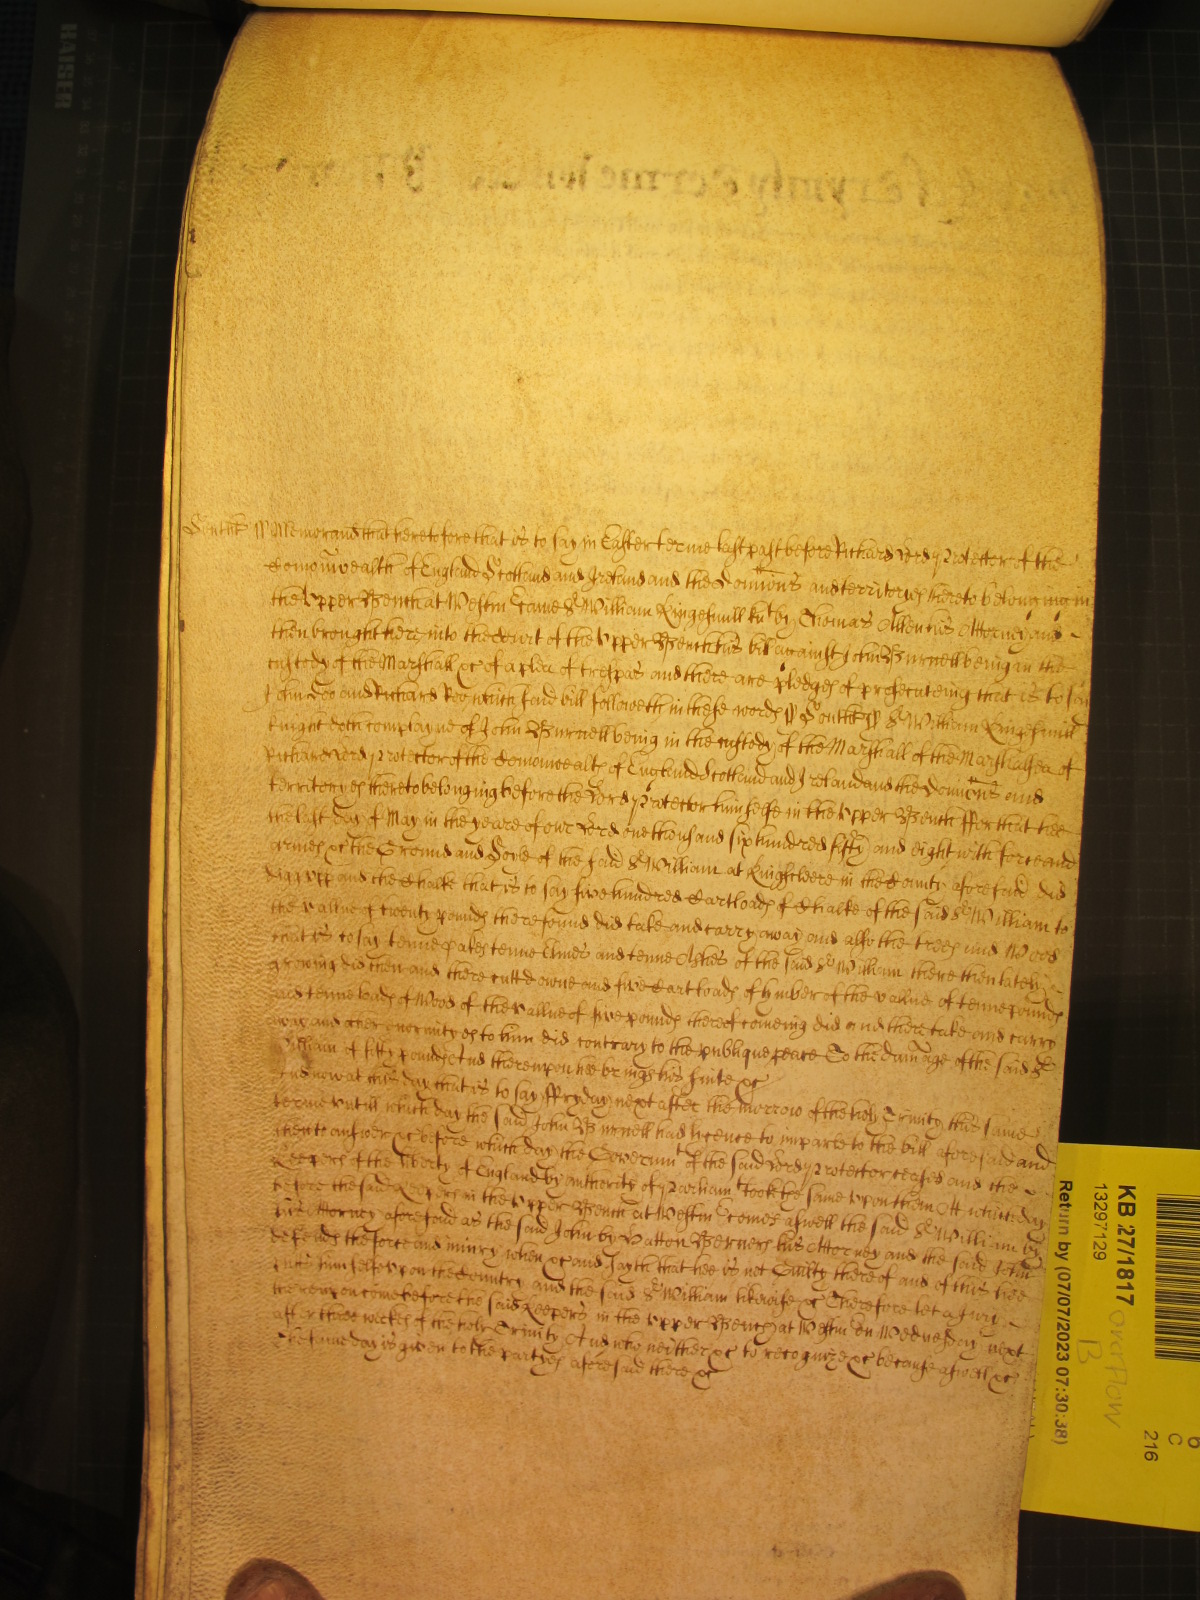 South't ss Memorand that heretofore that is to say in Easter terme last past before Richard Lord Protector of the
Comonwealth of England Scotland and Ireland and the Domions and territoryes thereto belonging in
the Upper Bench at Westm Came Sr William Kingesmill kt by Thomas Allen his Attorney and
then brought here into the Court of the Upper Bench his bill against John Burnell being in the
custody of the Marshall &c of a plea of trespas and there are pledges of prosecuteing that is to say
John Doo and Richard Roo which said bill followeth in these words ss South't ss Sr William Kingesmill
knight doth complayne of John Burnell being in the custody of the Marshall of the Marshalsea of
Richard Lord Protector of the Comonwealth of England Scotland and Ireland and the Domions and
territoryes thereto belonging before the Lord Protector himselfe in the Upper Bench ffor that hee
the last day of May in the yeare of our Lord one thousand six hundred fifty and eight with force and
armes &c the Ground and Soyle of the said Sr William at Kingscleere in the County aforesaid did
digg upp and the Chalke that is to say five hundred Cartloads of Chalke of the said Sr William to
the vallue of twenty pounds there found did take and carry away and alsoe the trees and Wood
that is to say tenne oakes tenne Elmes and tenne Ashes of the said Sr William there then lately
growing did then and there cutt downe and five Cart loads of tymber of the vallue of tenne pounds
and tenne loads of Wood of the vallue of five pounds thereof comeing did and there take and carry
away and other enormityes to him did contrary to the publique peace To the damage of the said Sr
William of fifty pounds And thereupon hee brings his suite &c
And now at this day that is to say ffryday next after the morrow of the holy Trinity this same
terme untill which day the said John Burnell had licence to imparle to the bill aforesaid and
then to answer &c before which day the Governmt of the said Lord Protector ceased and the
Keepers of the liberty of England by authority of Parliamt took the same upon them Att which day
before the said Keepers in the Upper Bench at Westm comes aswell the said Sr William by
his Attorney aforesaid as the said John by Hatton Berners his Attorney and the said John
defends the force and iniury when &c and sayth that hee is not Guilty thereof and of this hee
puts himselfe upon the Country and the said Sr William likewise &c Therefore let a jury
thereupon come before the said Keepers in the Upper Bench at Westm on Wednesday next
after three weekes of the holy Trinity And who neither &c to recognize &c because aswell &c
The same day is given to the partyes aforesaid there &c
KB 27/1817
13297129
Return by (07/07/2023 07:30:38)
overflow
B
C
216
KAISER